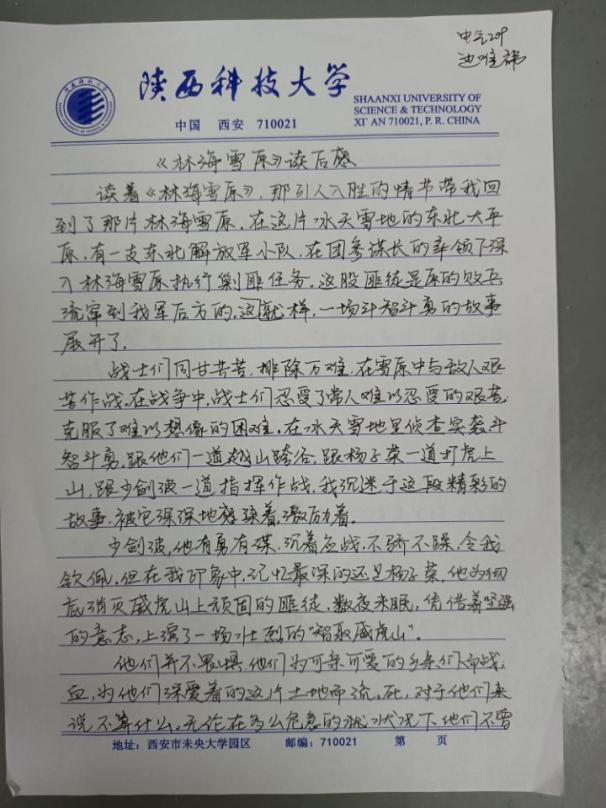 电气209
池唯祎
陕西科技大学
SHAANXI UNIVERSITY OF
SCIENCE & TECHNOLOGY
XI' AN 710021, P. R. CHINA
中国 西安 710021
《林海雪原》读后感
读着《林海雪原》,那引人入胜的情节带我回
到了那片林海雪原,在这片冰天雪地的东北大平
原,有一支东北解放军小队,在团参谋长的率领下深
入林海雪原执行剿匪任务,这股匪徒是原的败兵
流窜到我军后方的,这就样,一场斗智斗勇的故事
展开了.
战士们同甘共苦,排除万难,在雪原中与敌人艰
苦作战,在战争中,战士们忍受了常人难以忍受的艰苦,
克服了难以想像的困难,在冰天雪地里侦查实袭斗
智斗勇,跟他们一道越山跨谷,跟杨子荣一道打虎上
山,跟少剑波一道指挥作战,我沉迷于这段精彩的
故事,被它深深地感染着,激励着.
少剑波,他有勇有谋,沉着应战,不骄不躁,令我
钦佩,但在我印象中,记忆最深的还是杨子荣,他为彻
底消灭威虎山上顽固的匪徒,数夜未眠,凭借着坚强
的意志,上演了一场"智取威虎山".
他们并不畏惧,他们为可亲可爱的乡亲们而战,
血,为他们深爱着的这片土地而流,死,对于他们来
说不算什么,无论在多么危急的状况下,他们不曾
地址:西安市未央大学园区 邮编:710021 第 页